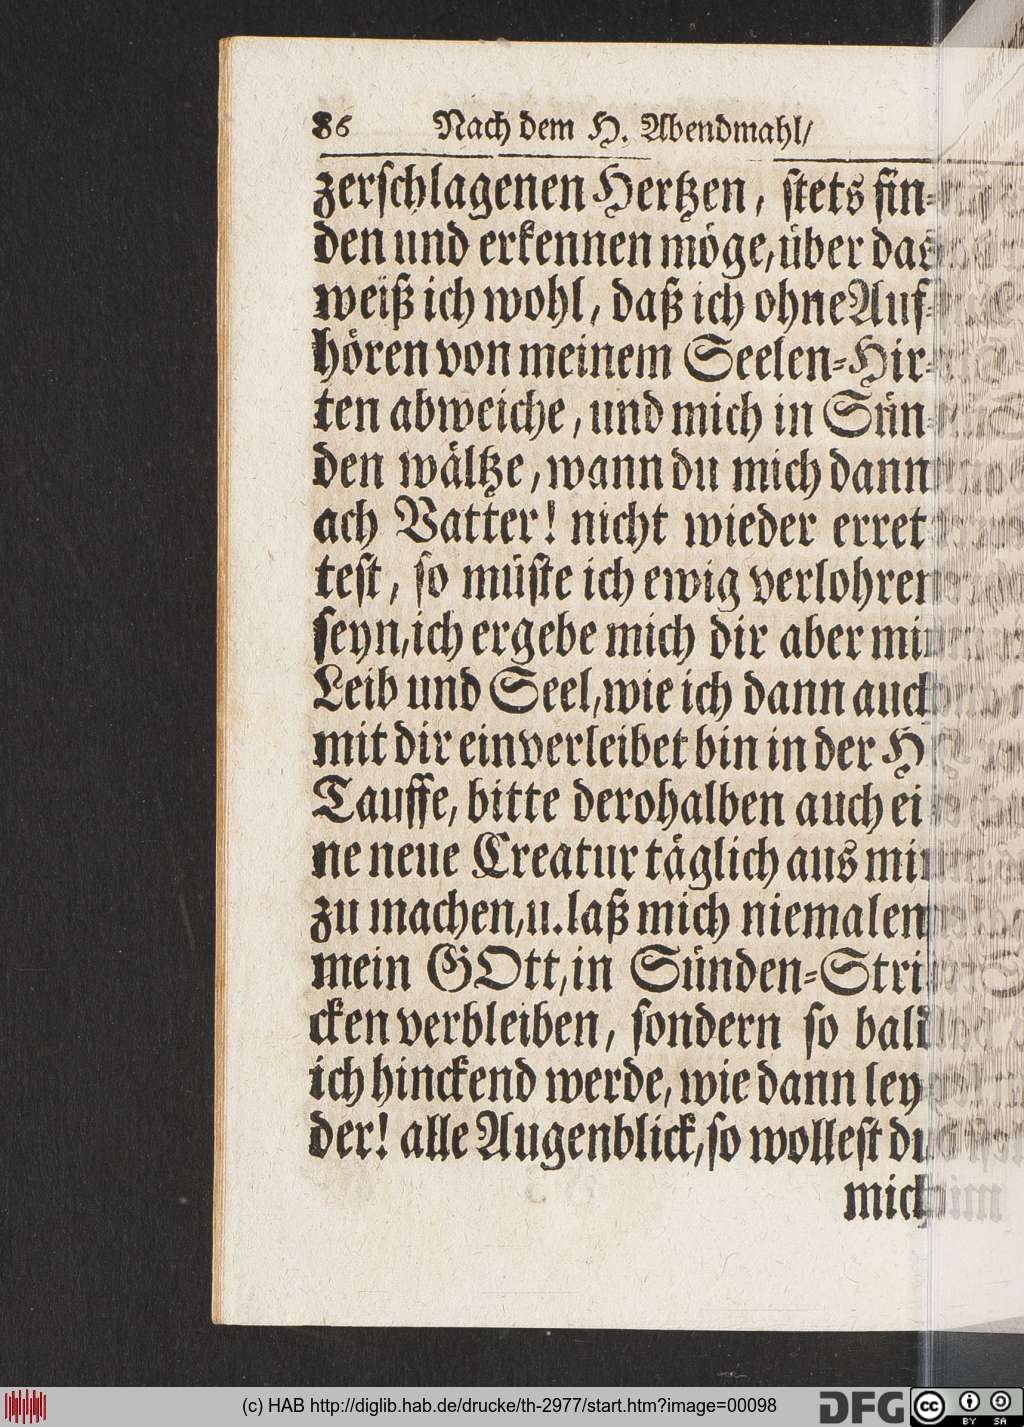 86 Nach dem H. Abendmahl/
zerschlagenen Hertzen, stets fin-
den und erkennen möge, über das
weiß ich wohl, daß ich ohne Auf-
hören von meinem Seelen-Hir-
ten abweiche, und mich in Sün-
den wältze, wann du mich dann
ach Vatter! nicht wieder erret
test, so müste ich ewig verlohren
seyn, ich ergebe mich dir aber mit
Leib und Seel, wie ich dann auch
mit dir einverleibet bin in der H
Tauffe, bitte derohalben auch ei
ne neue Creatur täglich aus mir
zu machen, u. laß mich niemalen
mein GOtt, in Sünden-Stri
cken verbleiben, sondern so bald
ich hinckend werde, wie dann ley
der! alle Augenblick, so wollest du
mich
(c) HAB http://diglib.hab.de/drucke/th-2977/start.htm?image=00098
DFG
cc BY SA